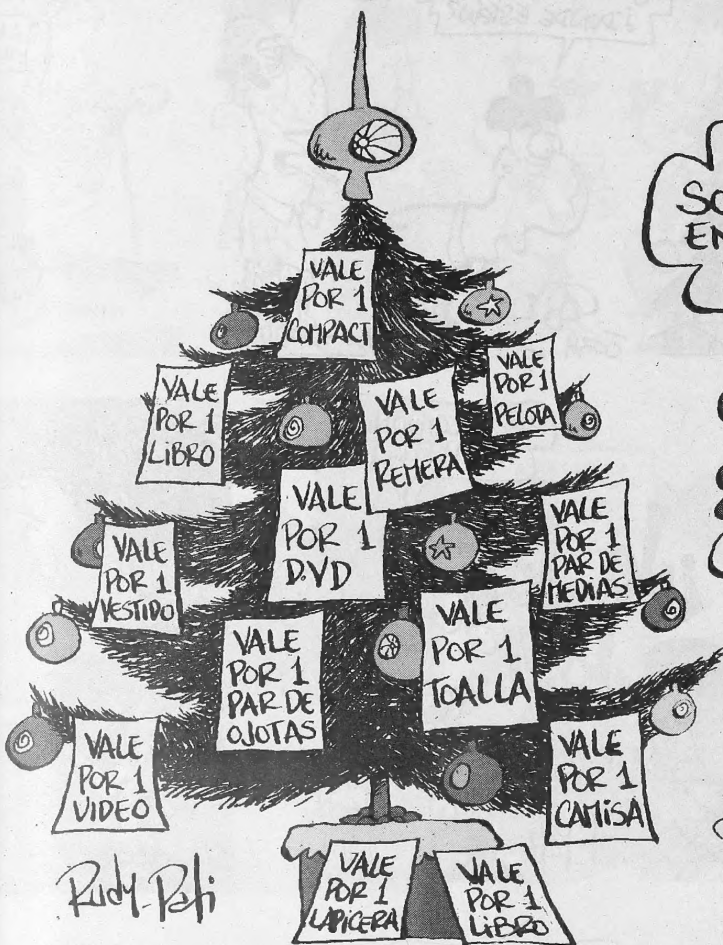 VALE
POR 1
COMPACT
VALE
POR 1
PELOTA
VALE
POR 1
LIBRO
VALE
POR 1
REMERA
VALE
POR 1
D.V.D
VALE
POR 1
PAR DE
MEDIAS
VALE
POR 1
VESTIDO
VALE
POR 1
PAR DE
OJOTAS
VALE
POR 1
TOALLA
VALE
POR 1
VIDEO
VALE
POR 1
CAMISA
VALE
POR 1
LAPICERA
VALE
POR 1
LIBRO
Rudy-Pati